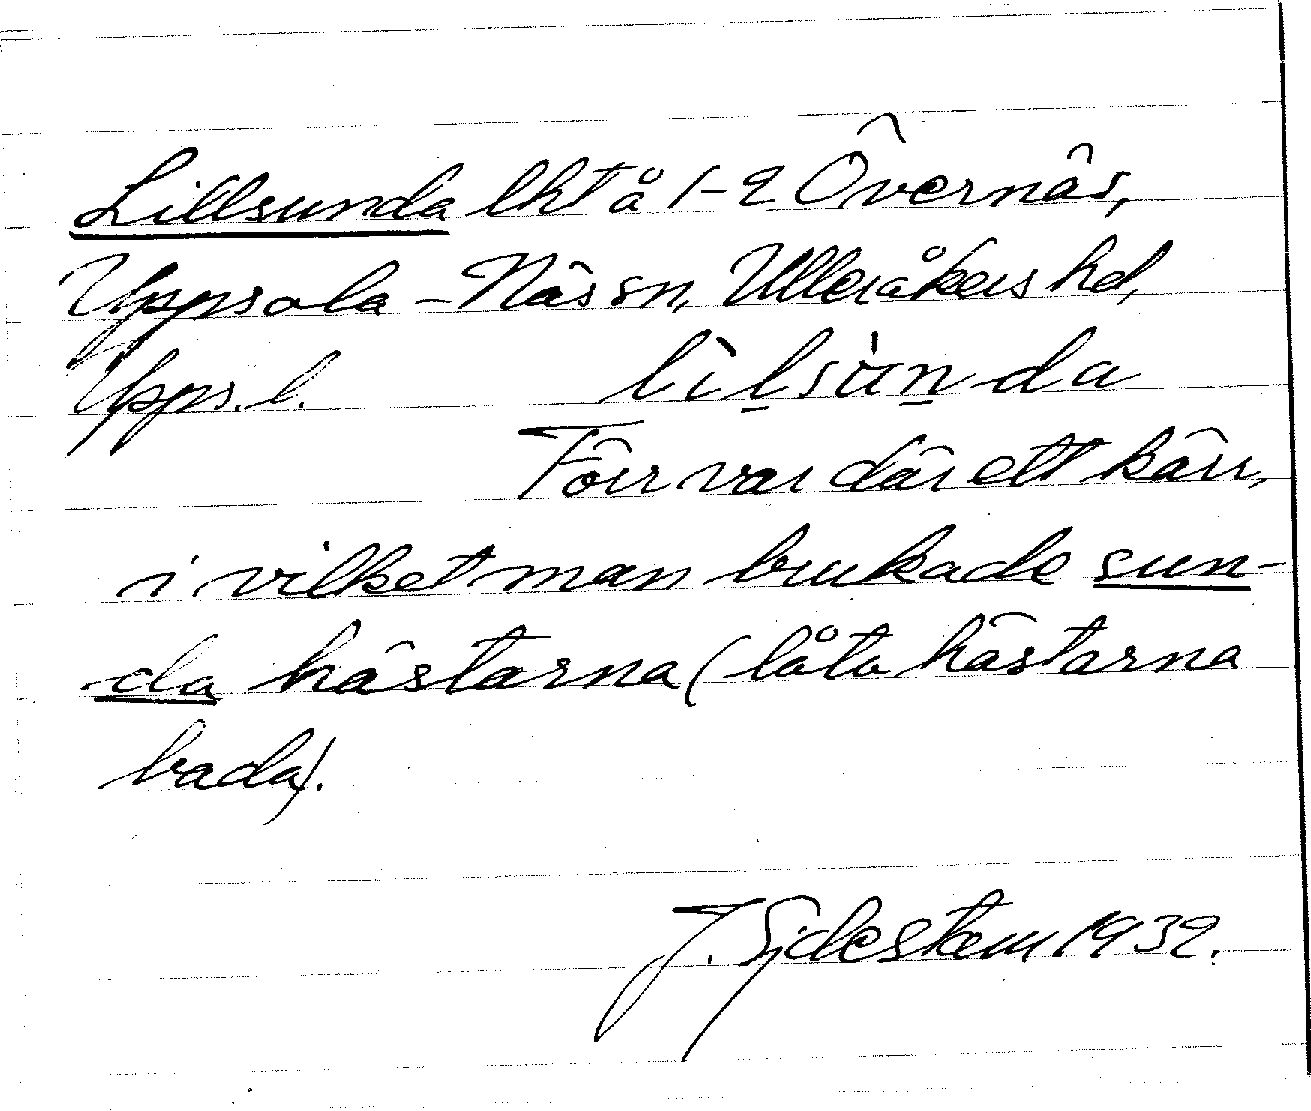 Lillsunda lht å 1-2 Övernäs,
Uppsala-Näs sn, Ulleråkers hd,
Upps. l. lìḷsùṇda
Förr var där ett kärr,
i vilket man brukade sun-
da hästarna (låta hästarna
bada).
J. Sjdestem 1932.